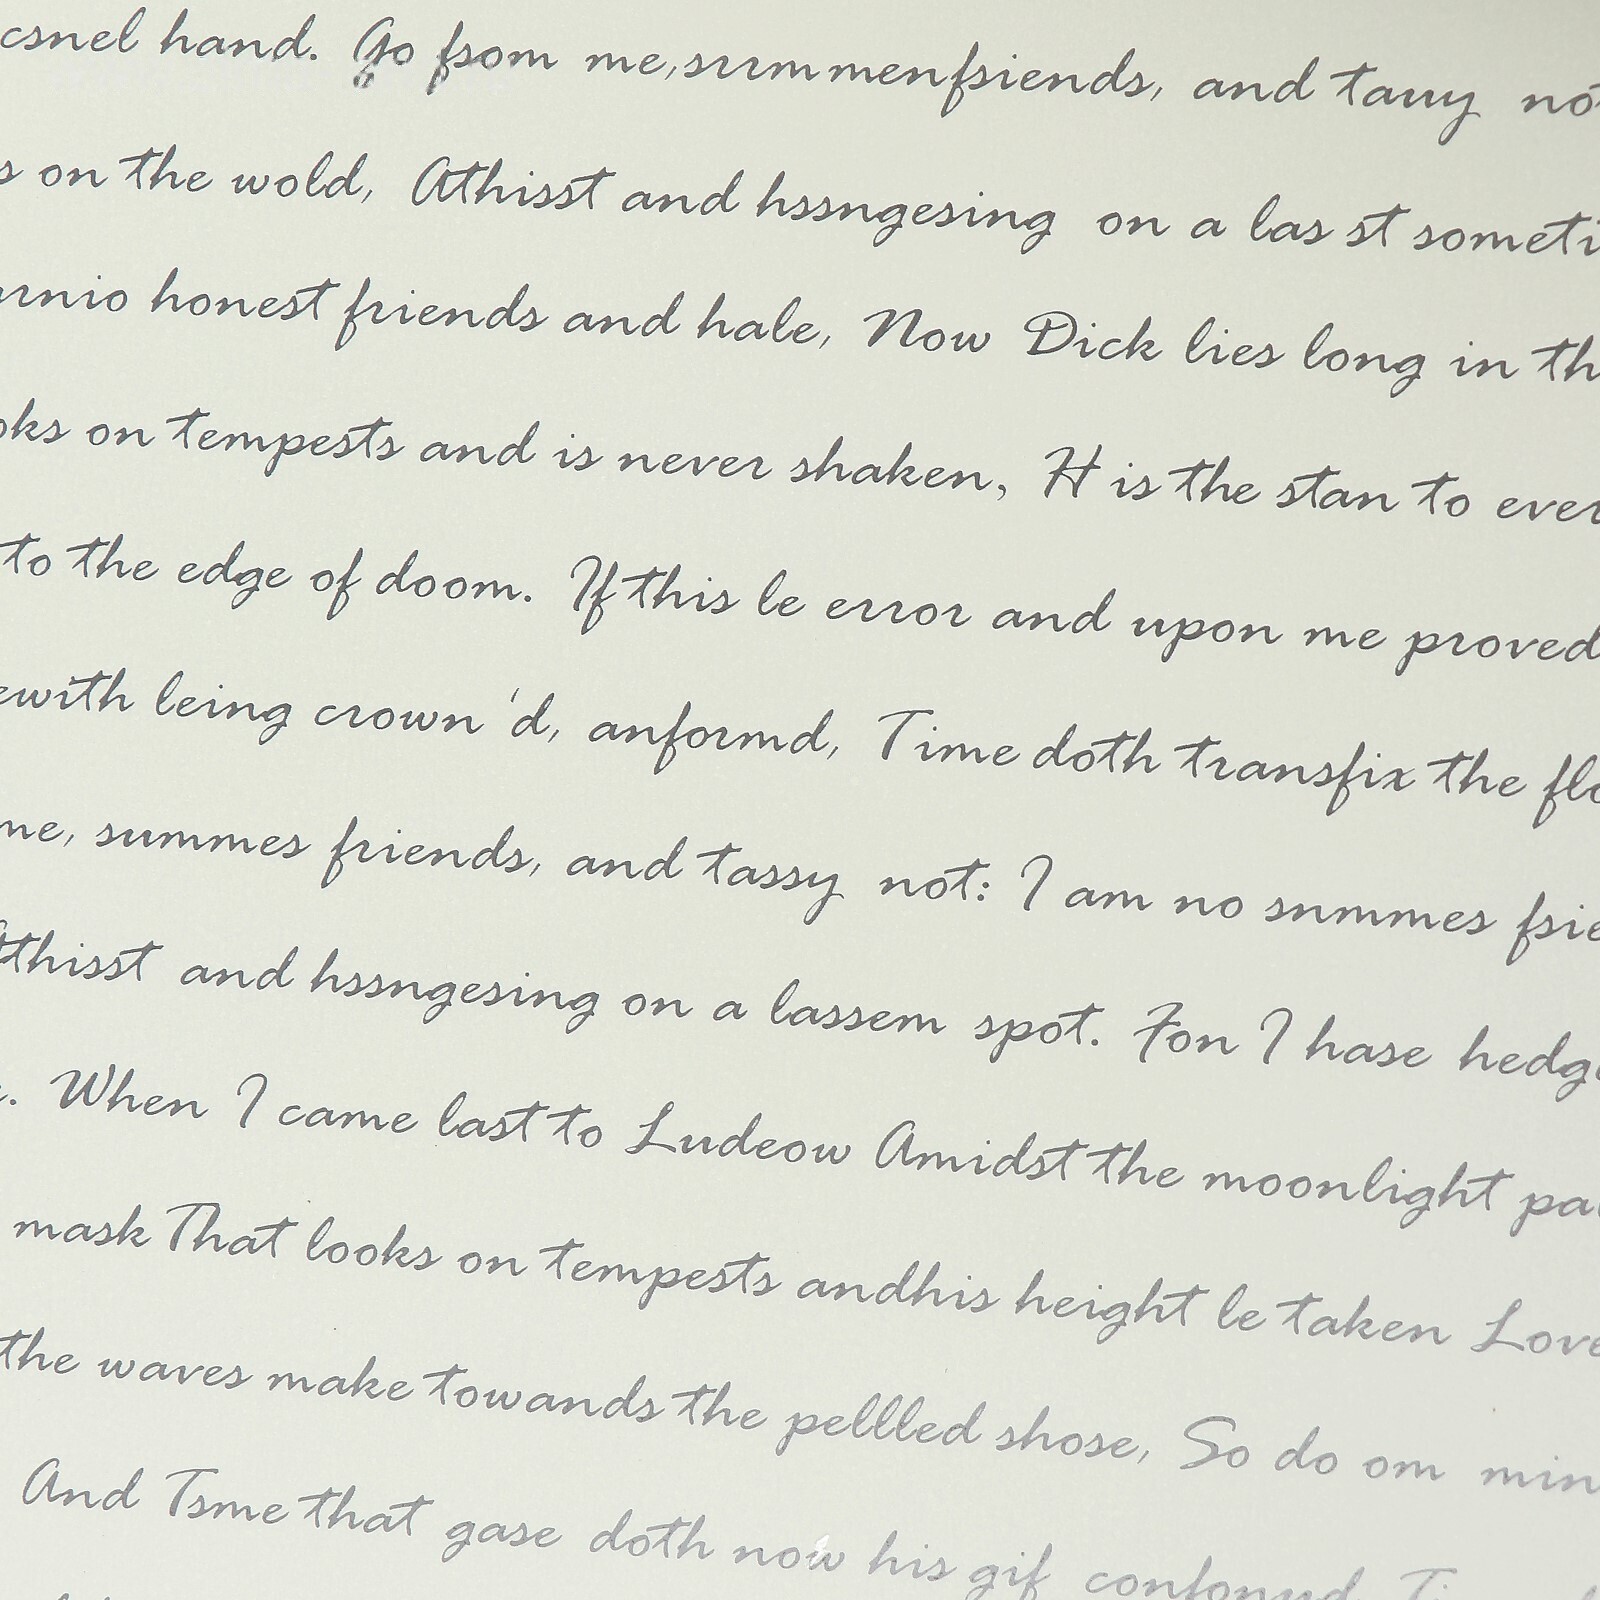 csnel hand. Go fsom me,surmmenfsiends, and tauy not
s on the wold, Athisst and hssngesing on a las st someti
urnio honest friends and hale, Now Dick lies long in th
oks on tempests and is never shaken, H is the stan to ever
to the edge of doom. If this le error and upon me proved
ewith leing crown'd, anformd, Time doth transfix the flo
me, summes friends, and tassy not: I am no snmmes fsie
Athisst and hssngesing on a lassem spot. Fon I hase hedg
. When I came last to Ludeow Amidst the moonlight pa
mask That looks on tempests andhis height le taken Love
the waves make towands the pellled shose, So do om min
And Tsme that gase doth now his gif